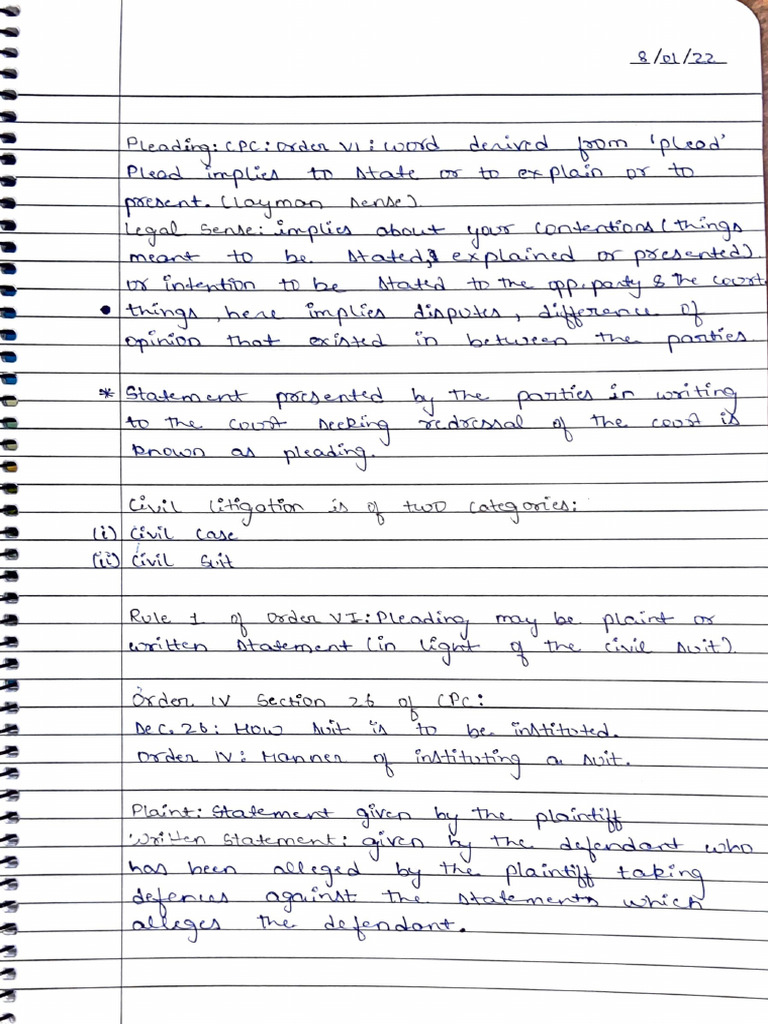 8/01/22
Pleading: CPC: Order VI: word derived from 'plead'
Plead implies to state or to explain or to
present. (Layman sense).
Legal Sense: implies about your contentions (things
meant to be stated, explained or presented)
or intention to be stated to the opp. party & the court.
• things, here implies disputes, difference of
opinion that existed in between the parties.
* Statement presented by the parties in writing
to the court seeking redressal of the court is
known as pleading.
Civil Litigation is of two categories:
(i) Civil Case
(ii) Civil Suit
Rule 1 of Order VI: Pleading may be plaint or
written statement (in light of the civil suit).
Order IV Section 26 of CPC:
Sec. 26: How suit is to be instituted.
Order IV: Manner of instituting a suit.
Plaint: Statement given by the plaintiff
Written Statement: given by the defendant who
has been alleged by the plaintiff taking
defences against the statements which
alleges the defendant.